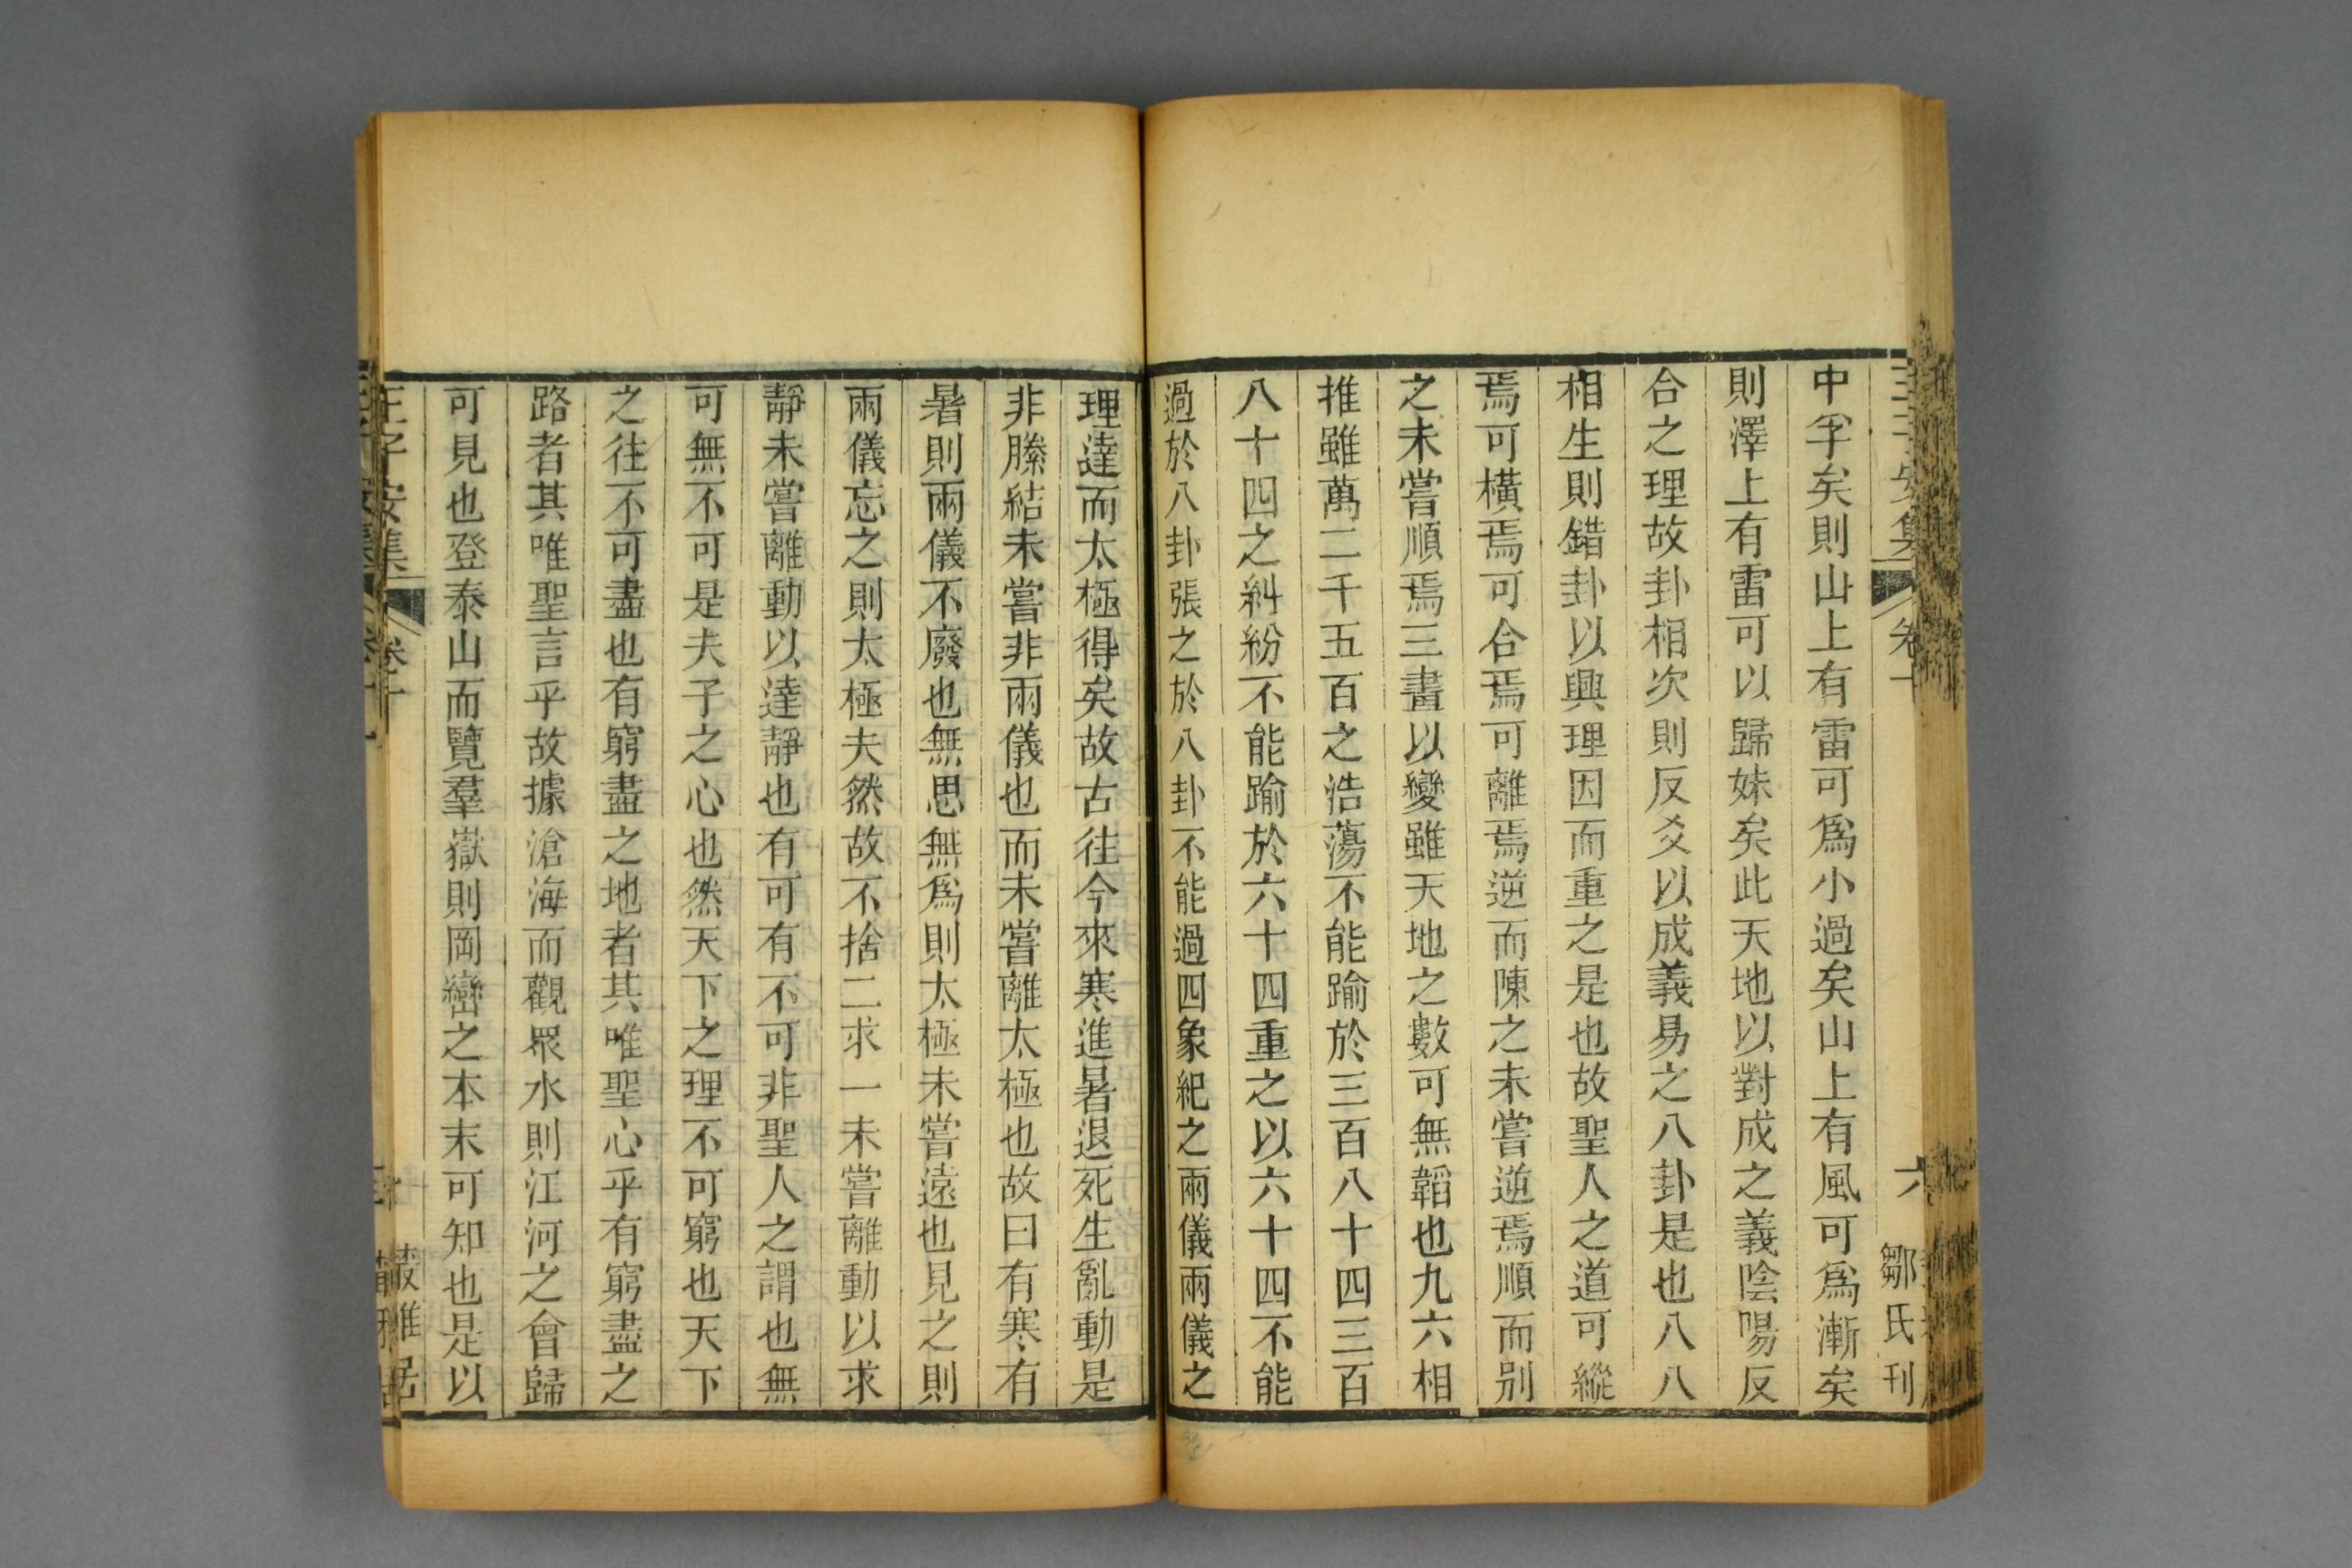 中孚矣則山上有雷可爲小過矣山上有風可爲漸矣
則澤上有雷可以歸妹矣此天地以對成之義陰陽反
合之理故卦相次則反爻以成義易之八卦是也八八
相生則錯卦以興理因而重之是也故聖人之道可縱
焉可橫焉可合焉可離焉逆而陳之未嘗逆焉順而别
之未嘗順焉三畫以變雖天地之數可無韜也九六相
推雖萬二千五百之浩蕩不能踰於三百八十四三百
八十四之糾紛不能踰於六十四重之以六十四不能
過於八卦張之於八卦不能過四象紀之兩儀兩儀之
理達而太極得矣故古往今來寒進暑退死生亂動是
非縢結未嘗非兩儀也而未嘗離太極也故曰有寒有
暑則兩儀不廢也無思無爲則太極未嘗遠也見之則
兩儀忘之則太極夫然故不捨二求一未嘗離動以求
靜未嘗離動以達靜也有可有不可非聖人之謂也無
可無不可是夫子之心也然天下之理不可窮也天下
之往不可盡也有窮盡之地者其唯聖心乎有窮盡之
路者其唯聖言乎故據滄海而觀眾水則江河之會歸
可見也登泰山而覽羣嶽則岡巒之本末可知也是以
王子安集 卷十
六 鄒氏刊
王子安集 卷十
叢雅居